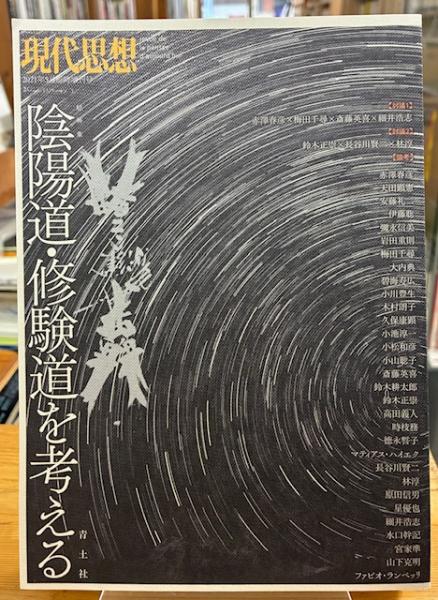 現代思想
revue de la pensée d'aujourd'hui
2021年5月臨時増刊号
総特集
陰陽道・修験道を考える
青土社
【討議1】
赤澤春彦×梅田千尋×斎藤英喜×細井浩志
【討議2】
鈴木正崇×長谷川賢二×林淳
【論考】
赤澤春彦
天田顕徳
安藤礼二
伊藤聡
彌永信美
岩田重則
梅田千尋
大内典
碧海寿広
小川豊生
木村朗子
久保康顕
小池淳一
小松和彦
小山聡子
斎藤英喜
鈴木耕太郎
鈴木正崇
高田義人
時枝務
徳永誓子
マティアス・ハイエク
長谷川賢二
林淳
原田信男
星優也
細井浩志
水口幹記
宮家準
山下克明
ファビオ・ランベッリ